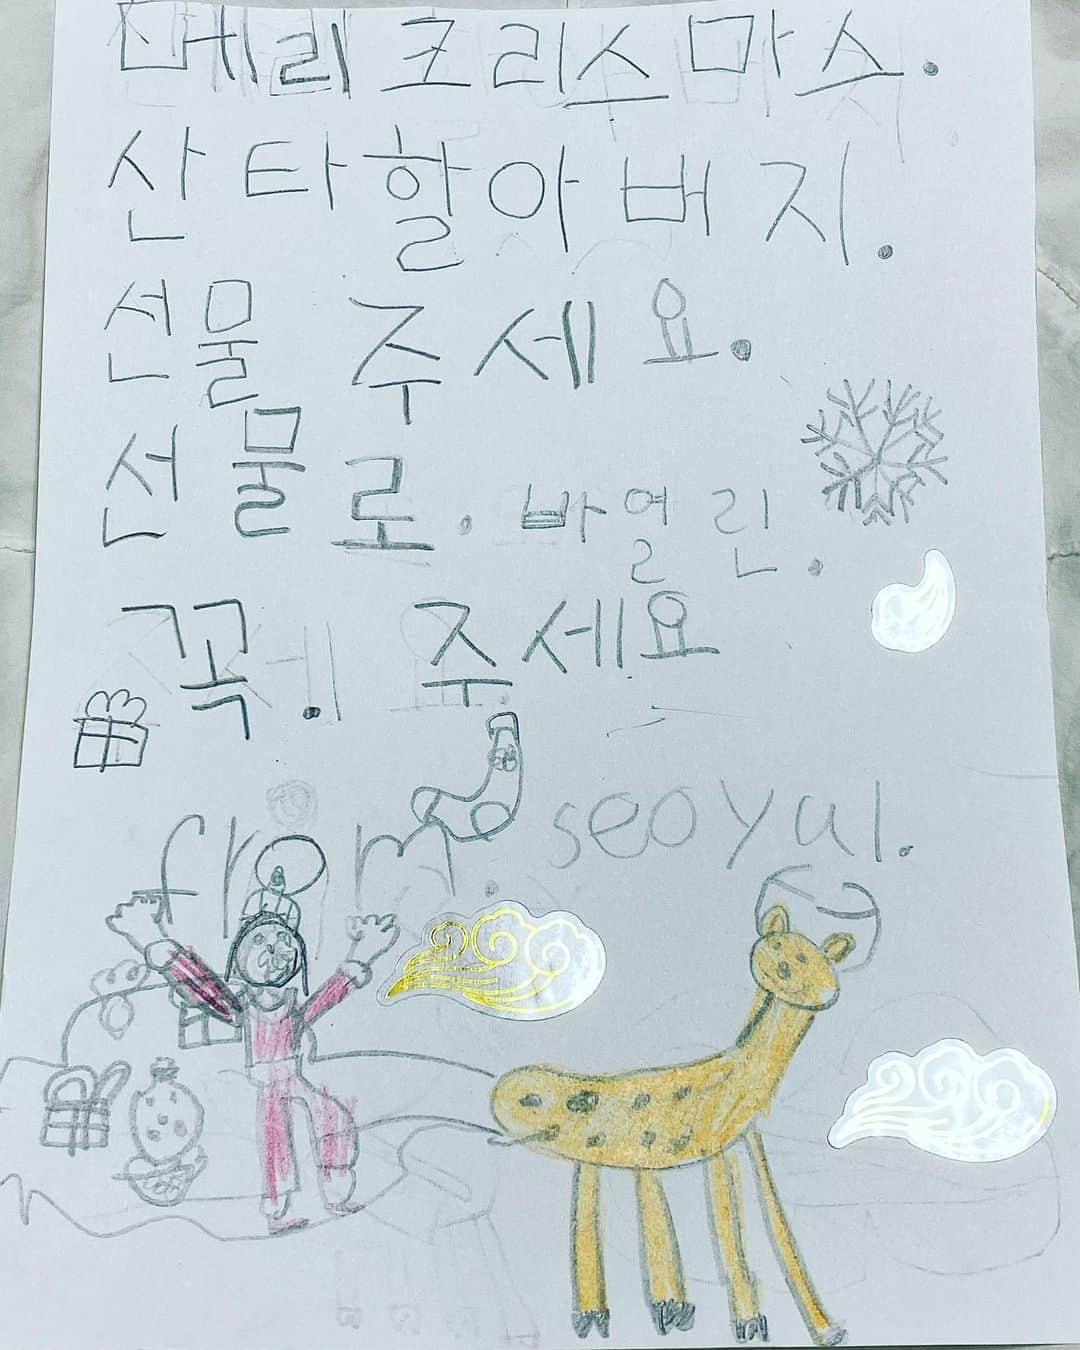 메리 크리스마스.
산타할아버지.
선물 주세요.
선물로. 바얼린.
꼭. 주세요
from. seoyul.